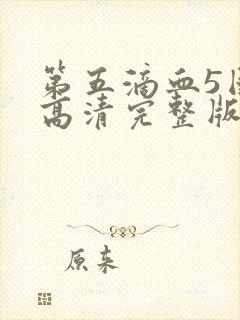 第五滴血5
高清完整版
原来